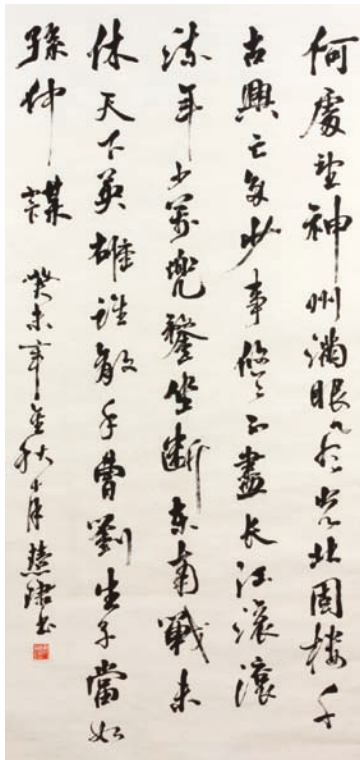 何處望神州滿眼風光北固樓千
古興亡多少事悠悠不盡长江滾滾
流年少萬兜鍪坐斷东南戰未
休天下英雄誰敵手曹劉生子當如
孫仲謀 癸未年金秋月慧书